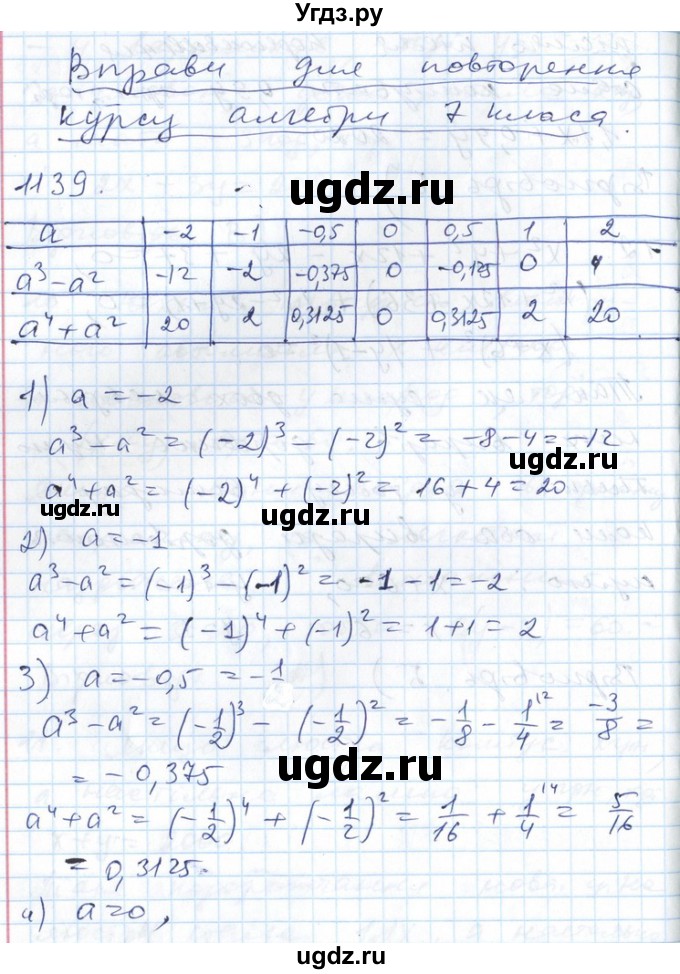 Угдз.ру
Вправи для повторення
курсу алгебри 7 класа.
1139.
ugdz.ru
a | -2 | -1 | -0,5 | 0 | 0,5 | 1 | 2
a³-a² | -12 | -2 | -0,375 | 0 | -0,125 | 0 | 4
a⁴+a² | 20 | 2 | 0,3125 | 0 | 0,3125 | 2 | 20
1) a = -2
a³-a² = (-2)³-(-2)² = -8-4 = -12
ugdz.ru
a⁴+a² = (-2)⁴+(-2)² = 16+4 = 20
ugdz.ru
ugdz.ru
2) a = -1
a³-a² = (-1)³-(-1)² = -1-1 = -2
a⁴+a² = (-1)⁴+(-1)² = 1+1 = 2
3) a = -0,5 = -1
a³-a² = (-1/2)³ - (-1/2)² = -1/8 - 1/4^\2 = -3/8 =
= -0,375
ugdz.ru
a⁴+a² = (-1/2)⁴ + (-1/2)² = 1/16 + 1/4^\4 = 5/16
= 0,3125.
4) a=0,
ugdz.ru
Угдз.ру